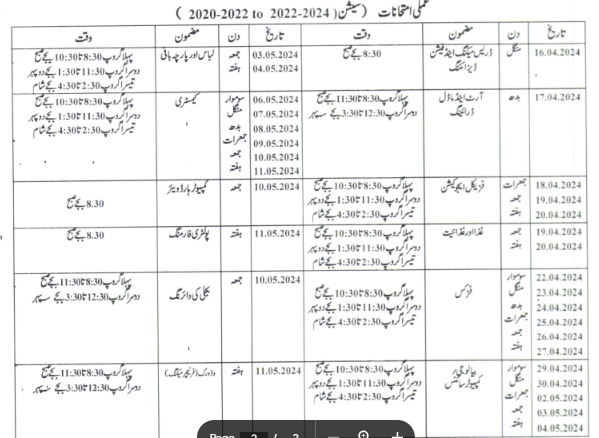 عملی امتحانات (سیشن 2022-2024 to 2020-2022)
تاریخ دن مضمون وقت تاریخ دن مضمون وقت
16.04.2024 منگل ڈریس میکنگ اینڈ فیشن ڈیزائننگ 8:30 بجے صبح
03.05.2024 جمعہ لباس اور پارچہ بافی پہلا گروپ 8:30 تا 10:30 بجے صبح
04.05.2024 ہفتہ دوسرا گروپ 11:30 تا 1:30 بجے دوپہر
تیسرا گروپ 2:30 تا 4:30 بجے شام
17.04.2024 بدھ آرٹ اینڈ ماڈل ڈرائنگ پہلا گروپ 8:30 تا 11:30 بجے صبح
دوسرا گروپ 12:30 تا 3:30 بجے سہ پہر
06.05.2024 سوموار کیمسٹری پہلا گروپ 8:30 تا 10:30 بجے صبح
07.05.2024 منگل دوسرا گروپ 11:30 تا 1:30 بجے دوپہر
08.05.2024 بدھ تیسرا گروپ 2:30 تا 4:30 بجے شام
09.05.2024 جمعرات
10.05.2024 جمعہ
11.05.2024 ہفتہ
18.04.2024 جمعرات فزیکل ایجوکیشن پہلا گروپ 8:30 تا 10:30 بجے صبح
19.04.2024 جمعہ دوسرا گروپ 11:30 تا 1:30 بجے دوپہر
20.04.2024 ہفتہ تیسرا گروپ 2:30 تا 4:30 بجے شام
10.05.2024 جمعہ کمپیوٹر ہارڈ ویئر 8.30 بجے صبح
19.04.2024 جمعہ غذا اور غذائیت پہلا گروپ 8:30 تا 10:30 بجے صبح
20.04.2024 ہفتہ دوسرا گروپ 11:30 تا 1:30 بجے دوپہر
تیسرا گروپ 2:30 تا 4:30 بجے شام
11.05.2024 ہفتہ پولٹری فارمنگ 8.30 بجے صبح
22.04.2024 سوموار فزکس پہلا گروپ 8:30 تا 10:30 بجے صبح
23.04.2024 منگل دوسرا گروپ 11:30 تا 1:30 بجے دوپہر
24.04.2024 بدھ تیسرا گروپ 2:30 تا 4:30 بجے شام
25.04.2024 جمعرات
26.04.2024 جمعہ
27.04.2024 ہفتہ
10.05.2024 جمعہ بجلی کی وائرنگ پہلا گروپ 8:30 تا 11:30 بجے صبح
دوسرا گروپ 12:30 تا 3:30 بجے سہ پہر
29.04.2024 سوموار بیالوجی/ کمپیوٹر سائنس پہلا گروپ 8:30 تا 10:30 بجے صبح
30.04.2024 منگل دوسرا گروپ 11:30 تا 1:30 بجے دوپہر
02.05.2024 جمعرات تیسرا گروپ 2:30 تا 4:30 بجے شام
03.05.2024 جمعہ
04.05.2024 ہفتہ
11.05.2024 ہفتہ ووڈ ورک (فرنیچر میکنگ) پہلا گروپ 8:30 تا 11:30 بجے صبح
دوسرا گروپ 12:30 تا 3:30 بجے سہ پہر
Page 2 / 2